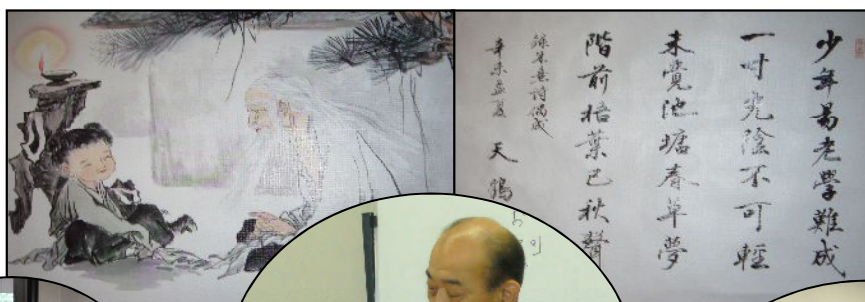 少年易老學難成
一吋光陰不可輕
未覺池塘春草夢
階前梧葉已秋聲
錄朱熹詩偶成
辛未孟夏 天